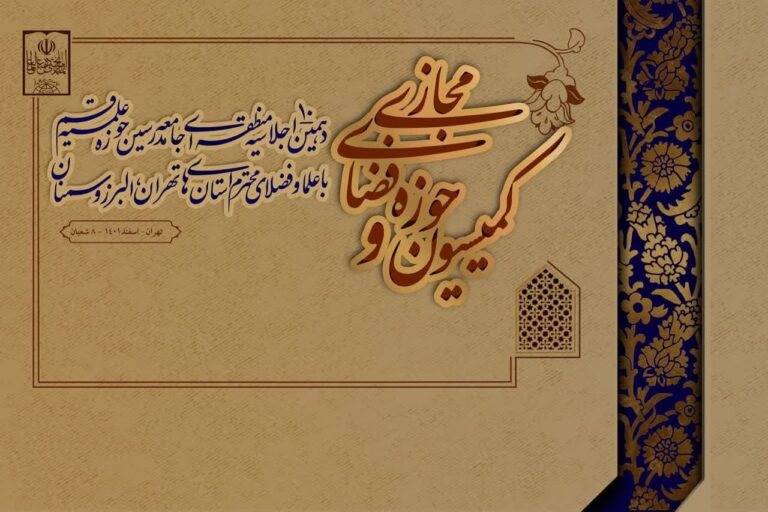 کمیسیون حوزه و فضای مجازی
دهمین اجلاسیه منطقه‌ای جامعه مدرسین حوزه علمیه قم
با علما و فضلای محترم استان‌های تهران، البرز و سمنان
تهران - اسفند ۱۴۰۱ - ۸ شعبان